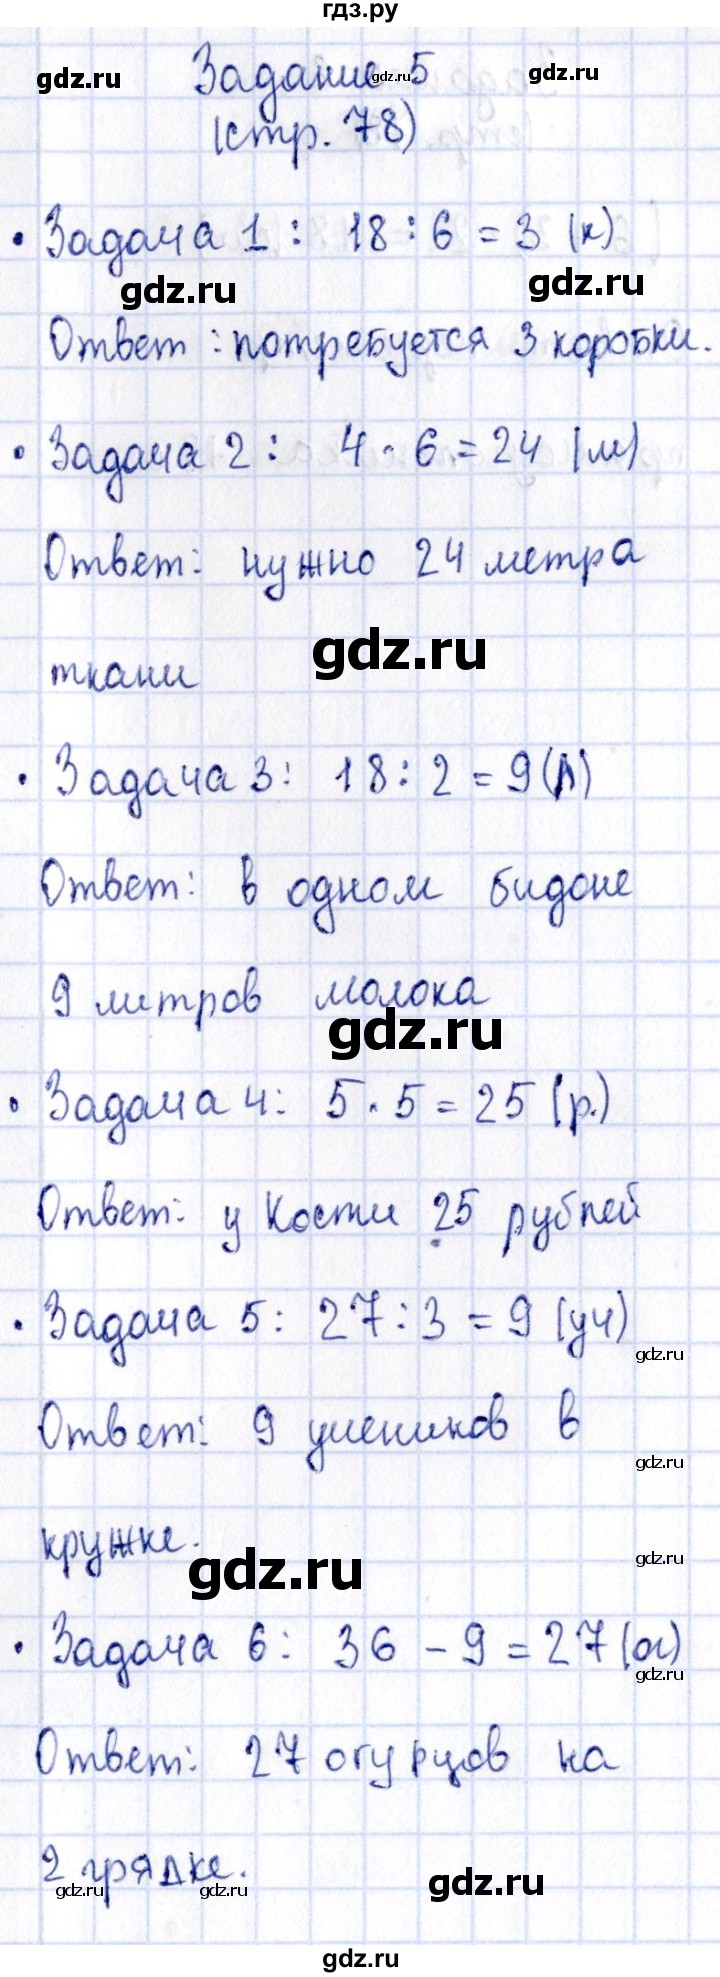 гдз.ру
gdz.ru Задание 5 gdz.ru gdz.ru
(стр. 78)
• Задача 1: 18 : 6 = 3 (к)
gdz.ru gdz.ru
Ответ: потребуется 3 коробки.
• Задача 2: 4 · 6 = 24 (м)
Ответ: нужно 24 метра
gdz.ru
ткани
• Задача 3: 18 : 2 = 9 (л)
Ответ: в одном бидоне
9 литров молока
gdz.ru
• Задача 4: 5 · 5 = 25 (р.)
Ответ: у Кости 25 рублей
• Задача 5: 27 : 3 = 9 (уч)
gdz.ru
Ответ: 9 учеников в
gdz.ru
кружке.
gdz.ru gdz.ru
• Задача 6: 36 - 9 = 27 (ог)
gdz.ru
Ответ: 27 огурцов на
2 грядке.
gdz.ru gdz.ru gdz.ru
gdz.ru